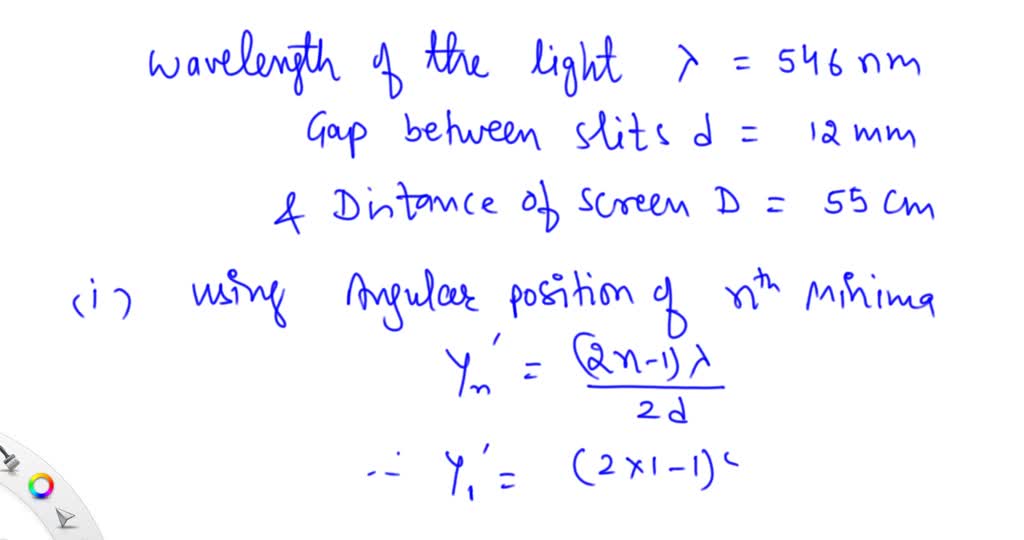 wavelength of the light λ = 546 nm
Gap between slits d = 12 mm
& Distance of screen D = 55 cm
(i) using Angular position of nth minima
Yn' = (2n-1)λ / 2d
∴ Y1' = (2×1-1)